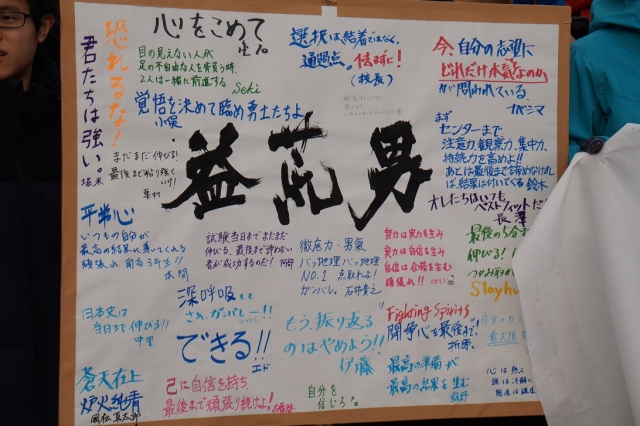 恐れるな!
君たちは強い。
心をこめて
目の見えない人が
足の不自由な人を背負う時、
2人は一緒に前進する
Seki
覚悟を決めて臨め勇士たちよ
小俣
まだまだ伸びる!
最後まで粘り強く
いけ!
選択は結着ではなく、
通過点。怯まずに!
(校長)
今、自分の志望に
どれだけ本気なのか
が問われている。
ナガシマ
まず
センターまで
注意力、観察力、集中力、
持続力を高めよ!!
あとは最後まで諦めなけれ
ば、結果は付いてくる 鈴木
益荒男
オレたちはいつも
ベストフィットだ
長澤
平常心
いつもの自分が
最高の結果に導いてくれる
頑張れ 前高3年生!!
本間
試験当日までまだまだ
伸びる、最後まで諦めない
者が成功するのだ!
徹底力・男気
バッ地理バッ地理
NO.1 点取れよ!
ガンバレ。
努力は実力を生み
実力は自信を生み
自信は合格を生む
頑張れ!!
最後の5分まで
伸びる!
日本史は
当日まで伸びる!!
中里
深呼吸して
さぁ、ガンバレー!!
できる!!
エド
もう、振り返る
のはやめよう!!
伊藤
Fighting Spirits
闘争心を最後まで!
折原
蒼天在上
炉火純青
風松直太郎
己に自信を持ち、
最後まで頑張り続けよ!
自分を
信じろ。
最高の準備が
最高の結果を生む
飯野
心は熱く
頭は冷静に